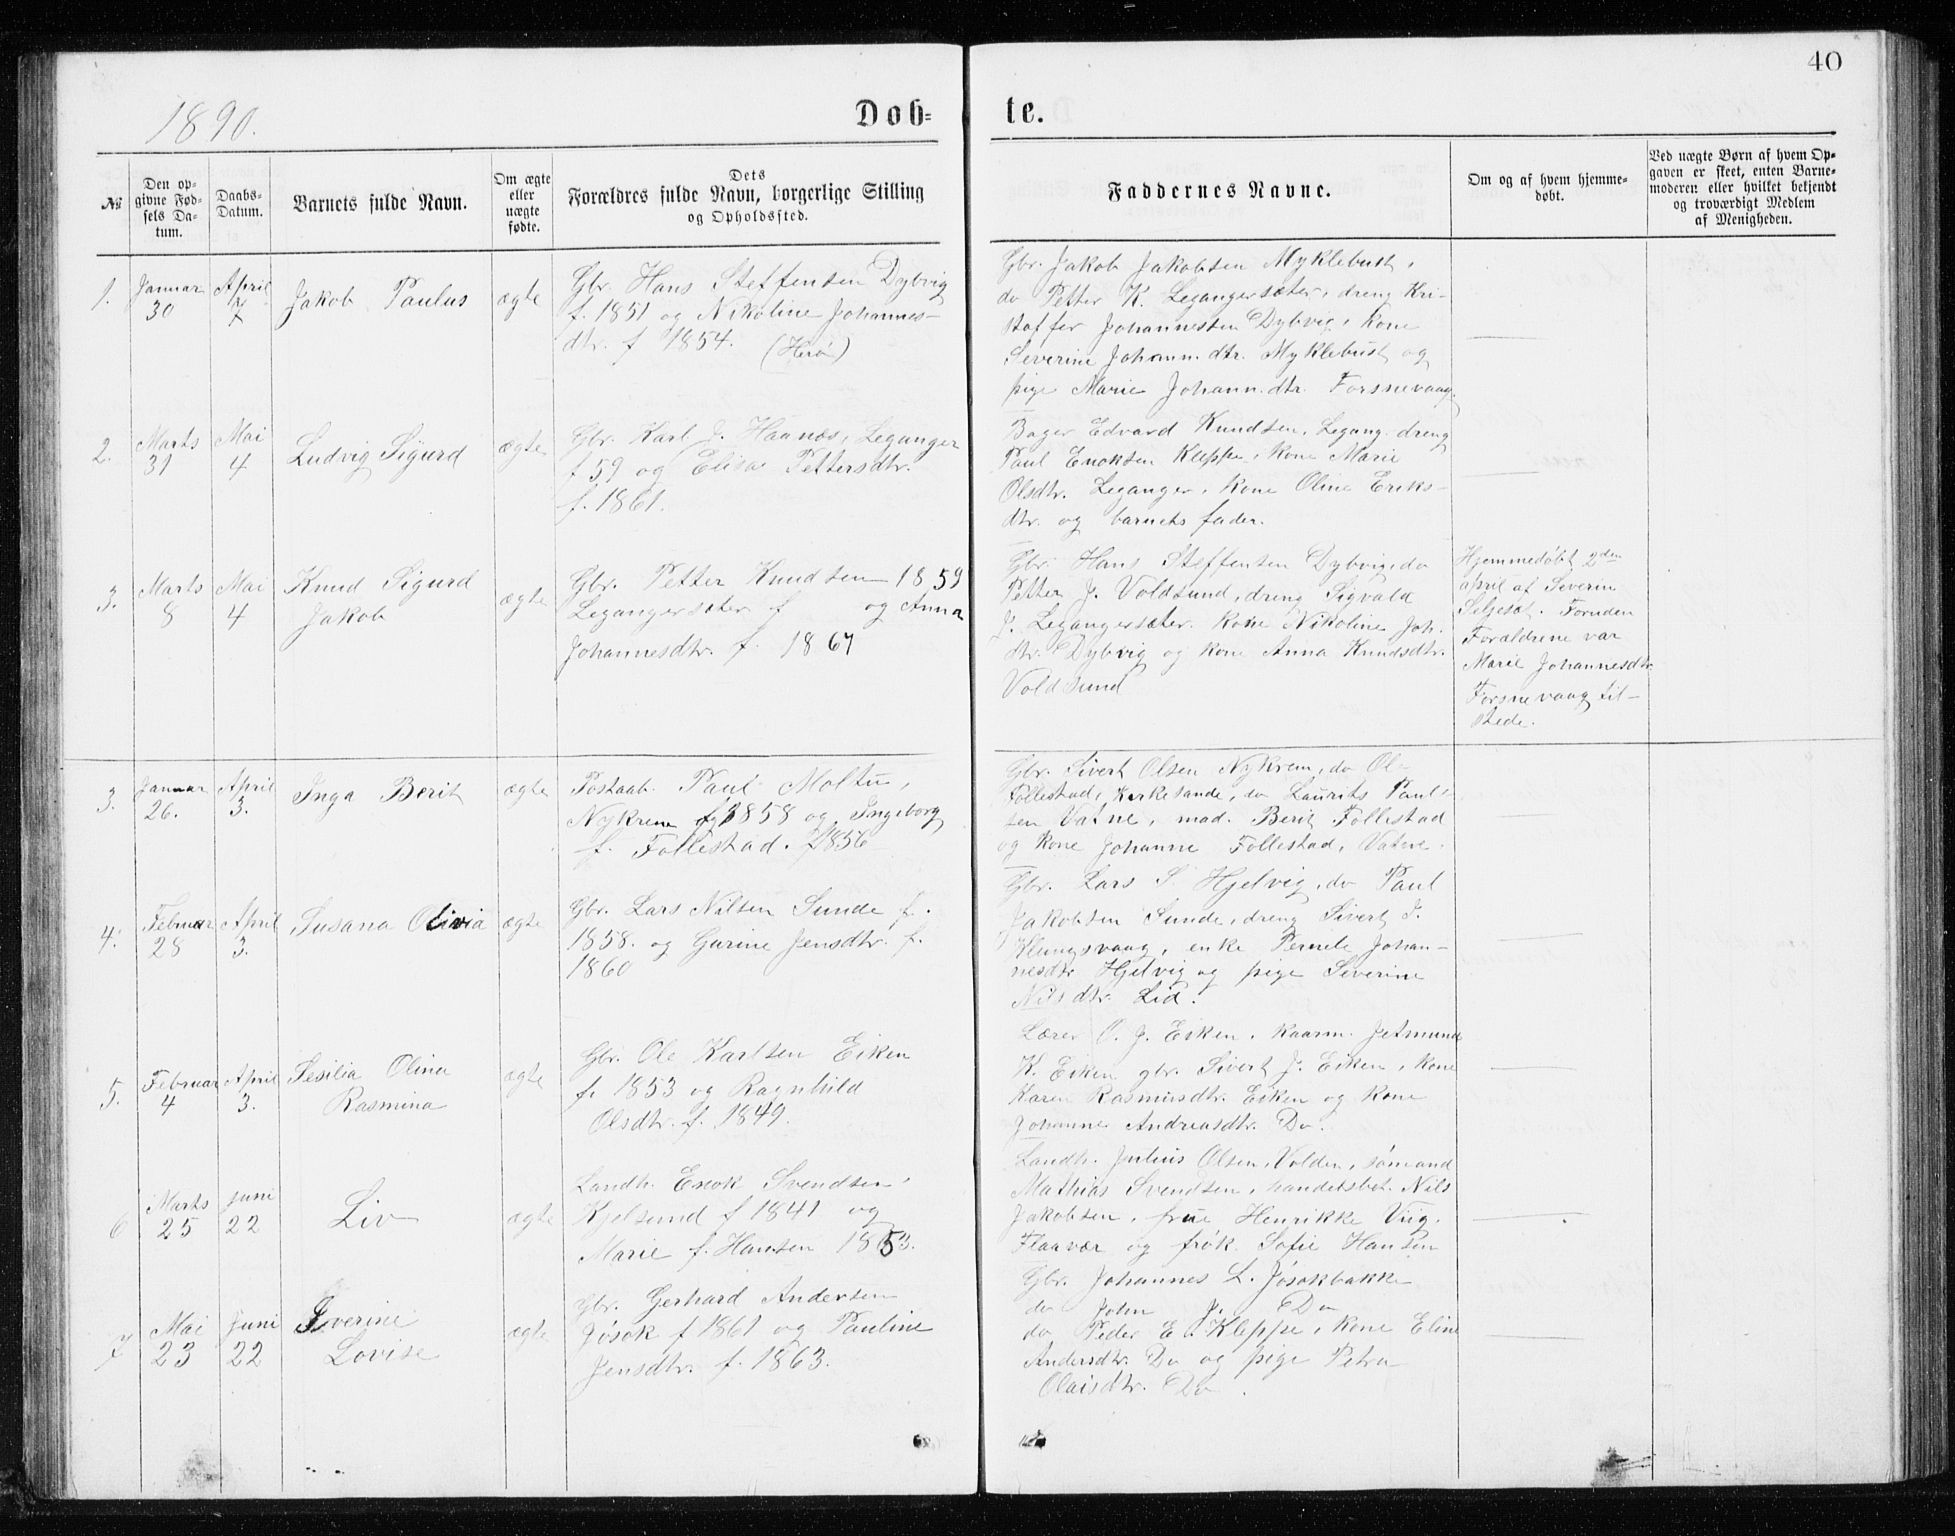 40
1890.
Dob= te.
№
Den op=
givne Fød=
sels Da=
tum.
Daabs=
Datum.
Barnets fulde Navn.
Om ægte
eller
uægte
fødte.
Dets
Forældres fulde Navn, borgerlige Stilling
og Opholdssted.
Faddernes Navne.
Om og af hvem hjemme=
døbt.
Ved uægte Børn af hvem Op=
gaven er skeet, enten Barne=
moderen eller hvilket bekjendt
og troværdigt Medlem
af Menigheden.
1.
Januar
30
April
7
Jakob Paulus
ægte
Gbr. Hans Steffensen Dybvig
f. 1851 og Nikoline Johannes-
dtr. f 1854. (Herö)
Gbr. Jakob Jakobsen Myklebust,
do Petter K. Legangersæter, dreng Kri-
stoffer Johannessen Dybvig, kone
Severine Johann.dtr. Myklebust og
pige Marie Johann.dtr. Forsnevaag.
2.
Marts
31
Mai
4
Ludvig Sigurd
ægte
Gbr. Karl J. Haanæs, Leganger
f 59 og Elisa Pettersdtr.
f. 1861.
Bager Edvard Knudsen, Legang. dreng
Paul Enoksen Kleppe, kone Marie
Olsdtr. Leganger, kone Oline Eriks-
dtr. og barnets fader.
3.
Marts
8
Mai
4
Knud Sigurd
Jakob
ægte
Gbr. Petter Knudsen 1859
Legangersæter f og Anna
Johannesdtr. f. 1867
Gbr. Hans Steffensen Dybvig, do
Petter J. Voldsund, dreng Sigvald
J. Legangersæter. Kone Nikoline Joh.
dtr. Dybvig og kone Anna Knudsdtr.
Voldsund
Hjemmedöbt 2den
april af Severin
Seljeset. Foruden
Forældrene var
Marie Johannesdtr
Forsnevaag til-
stede.
3.
Januar
26.
April
3.
Inga Berit
ægte
Postaab. Paul Moltu,
Nykrem f 1858 og Ingeborg
f. Follestad. f 1856
Gbr. Sivert Olsen Nykrem, do Ol-
Follestad, Kirkesande, do Laurits Paul-
sen Vatne, mad. Berit Follestad
og kone Johanne Follestad, Vatne.
4.
Februar
28
April
3.
Susana Olivia
ægte
Gbr. Lars Nilsen Sunde f.
1858. og Gurine Jensdtr. f.
1860
Gbr. Lars S. Hjelvig, do Paul
Jakobsen Sunde, dreng Sivert J.
Klungsvaag, enke Pernele Johan-
nesdtr Hjelvig og pige Severine
Nilsdtr. Lid.
5.
Februar
4
April
3.
Sesilia Olina
Rasmina
ægte
Gbr. Ole Karlsen Eiken
f. 1853 og Ragnhild
Olsdtr. f. 1849.
Lærer O. J. Eiken, kaarm. Jetmund
K. Eiken gbr. Sivert J. Eiken, kone
Karen Rasmusdtr. Eiken og kone
Johanne Andreasdtr. Do.
6
Marts
25
Juni
22
Liv
ægte
Landh. Enok Svendsen,
Kjelsund f 1841 og
Marie f. Hansen 1853.
Landh. Julius Olsen, Volden, sömand
Mathias Svendsen, handelsbet. Nils
Jakobsen, frue Henrikke Viig,
Flaavær og frök. Sofie Hansen
7
Mai
23
Juni
22
Severine
Lovise
ægte
Gbr. Gerhard Andersen
Jösok f 1861 og Pauline
Jensdtr. f. 1863.
Gbr. Johannes L. Jösokbakke
do John J. Do
do Peder E. Kleppe, kone Eline
Andersdtr. Do og pige Petra
Olaisdtr. Do.